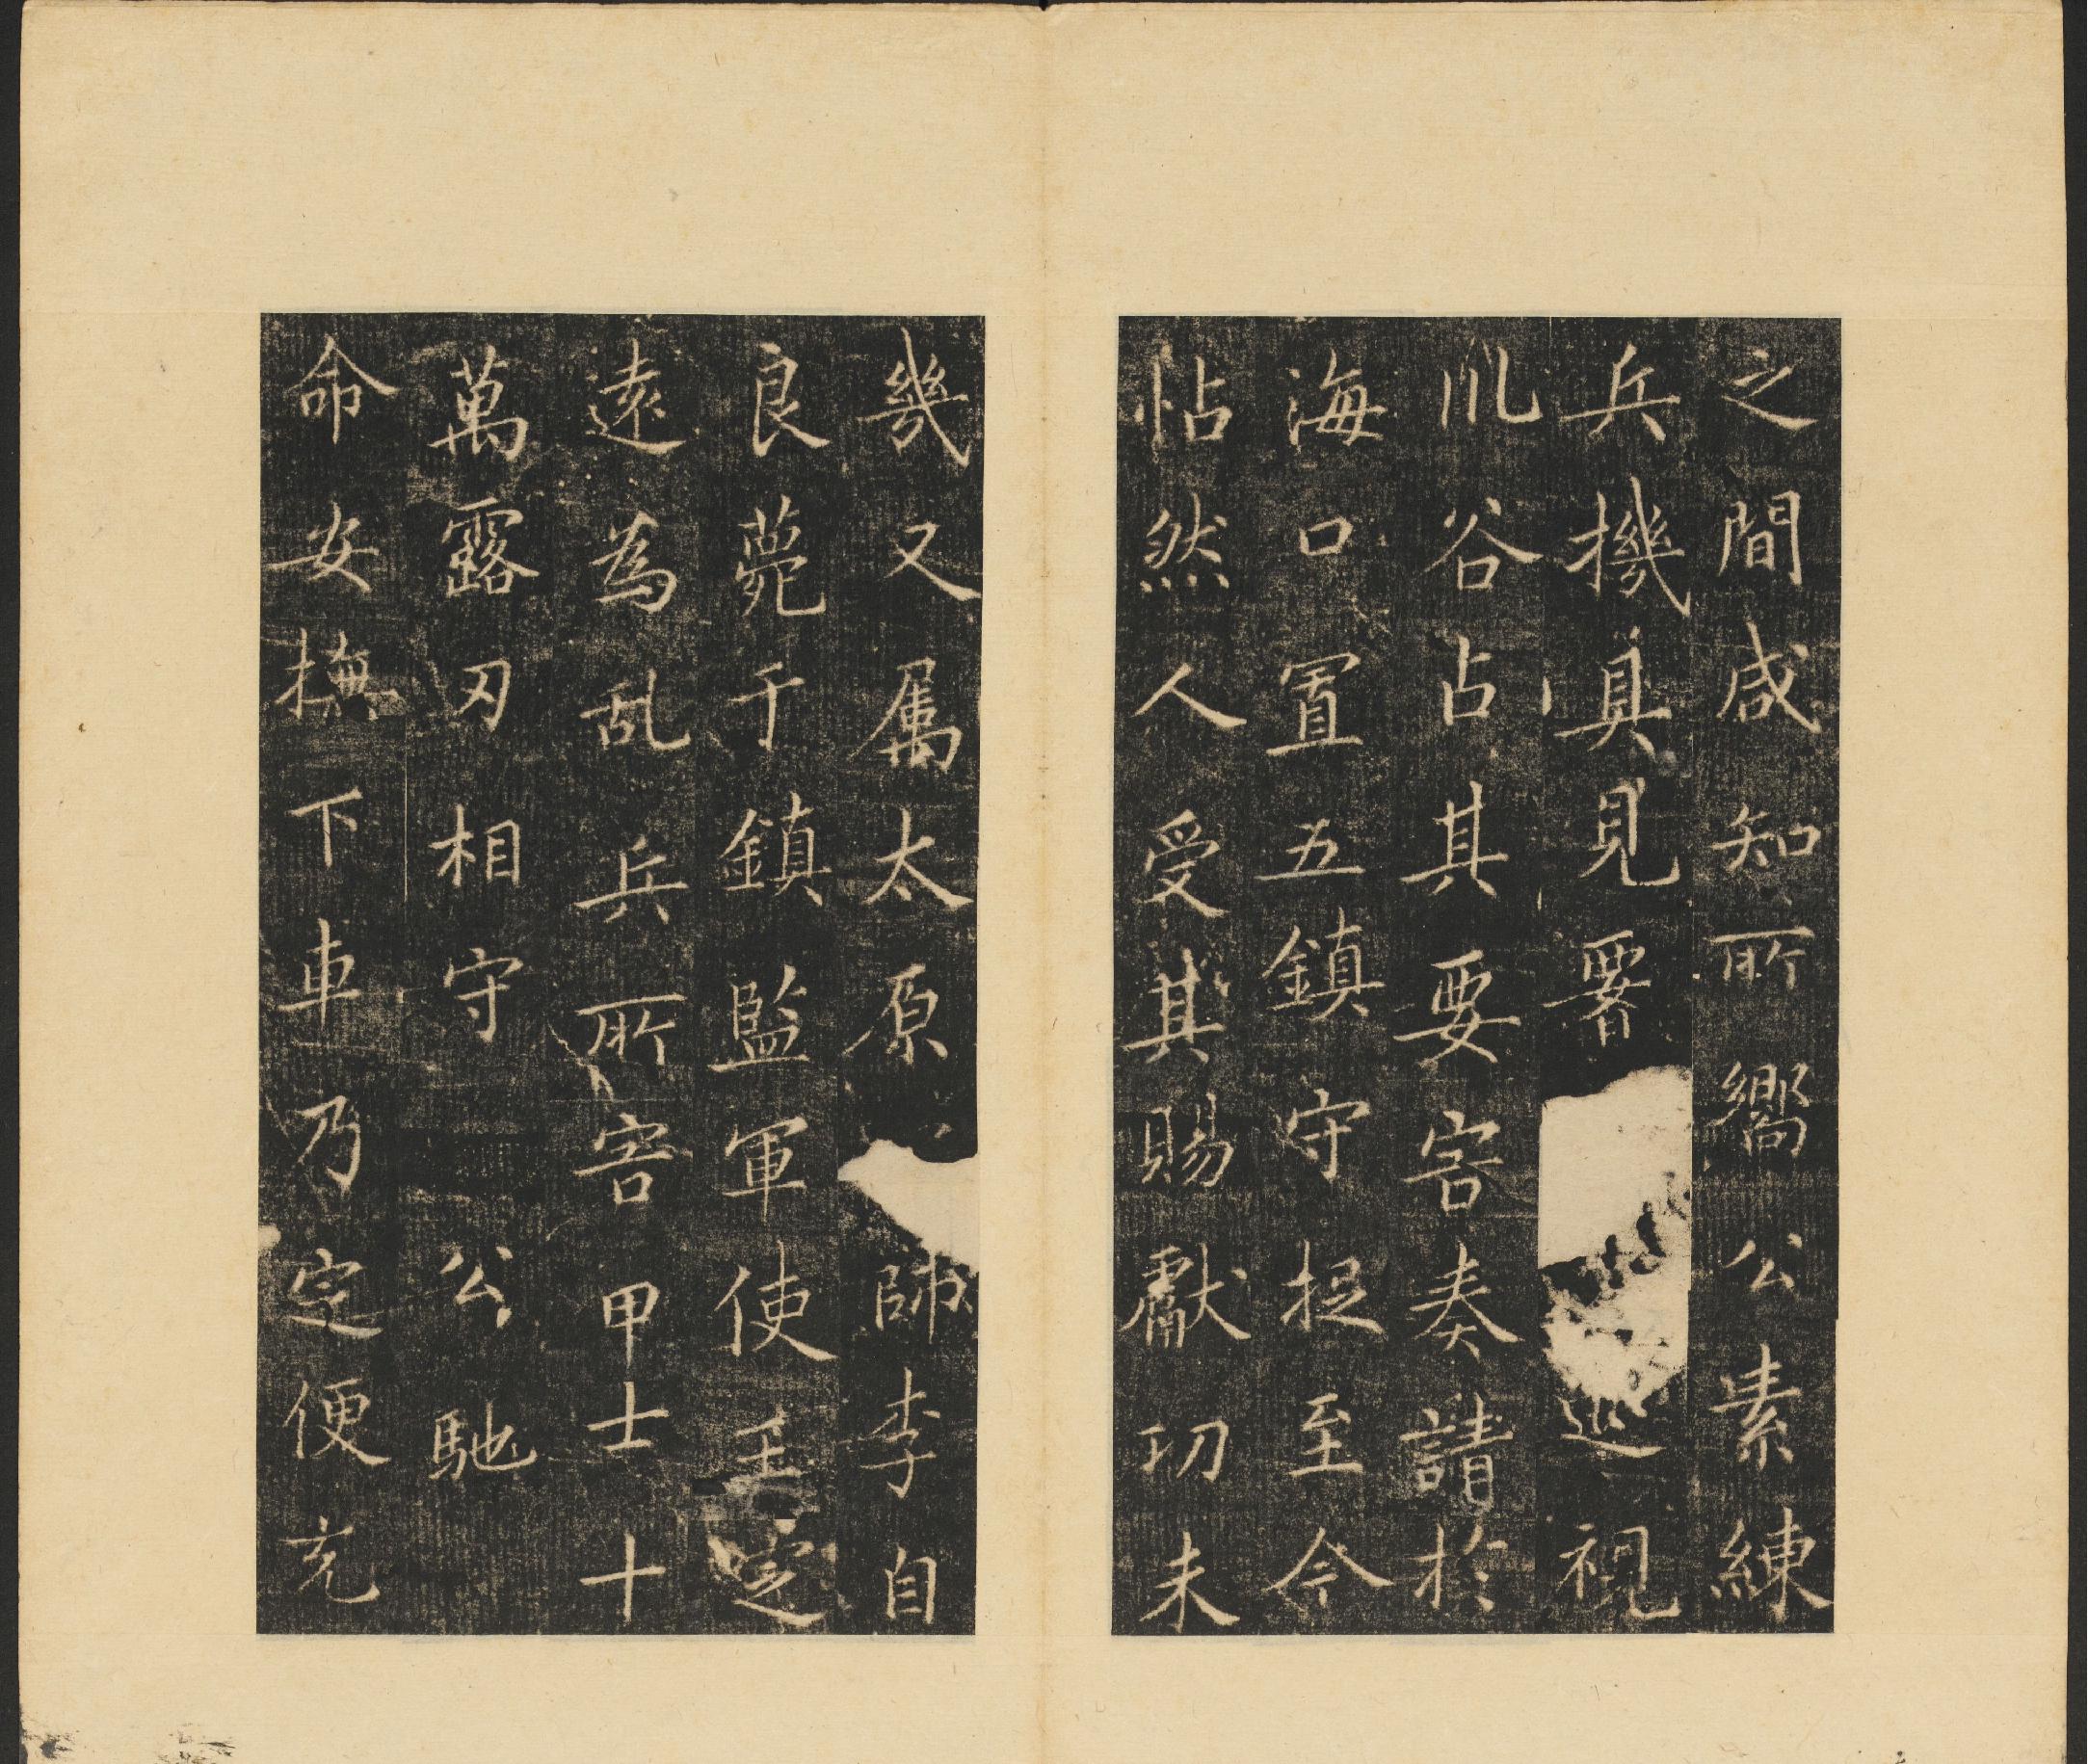 之間咸知所嚮公素練
兵機具見畧巡視
川谷占其要害奏請於
海口置五鎮守捉至今
帖然人受其賜獻功未
幾又属太原帥李自
良薨于鎮監軍使王定
逺為乱兵所害甲士十
萬露刃相守公馳
命安撫下車乃定便充